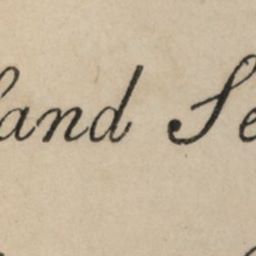 and Se